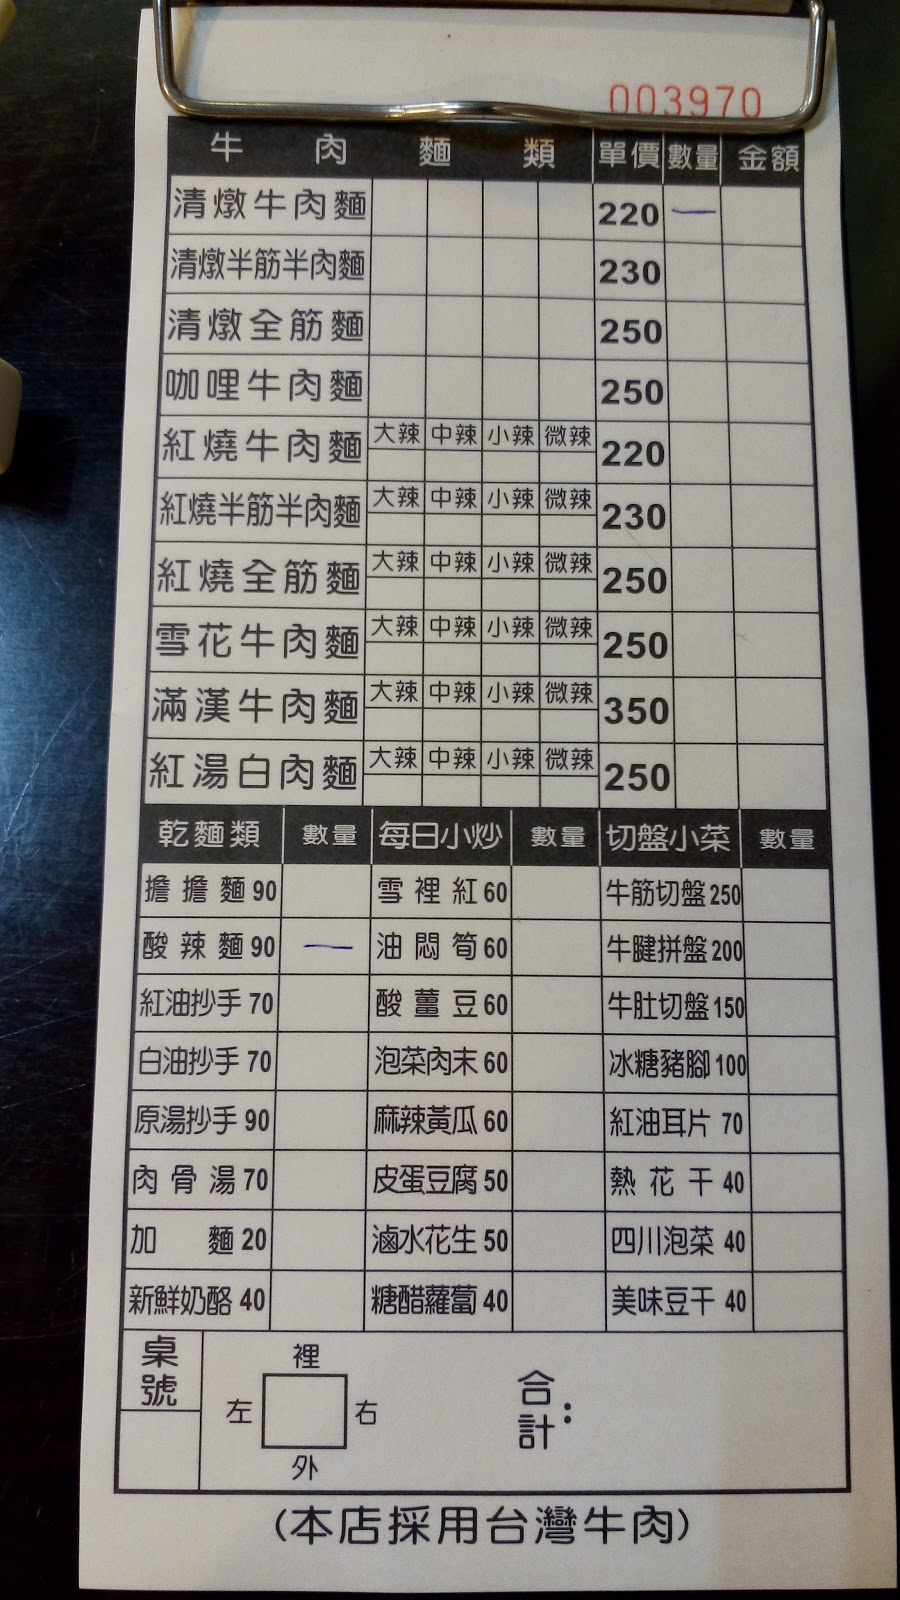 003970
牛肉麵類 單價 數量 金額
清燉牛肉麵 220 一
清燉半筋半肉麵 230
清燉全筋麵 250
咖哩牛肉麵 250
紅燒牛肉麵 大辣 中辣 小辣 微辣 220
紅燒半筋半肉麵 大辣 中辣 小辣 微辣 230
紅燒全筋麵 大辣 中辣 小辣 微辣 250
雪花牛肉麵 大辣 中辣 小辣 微辣 250
滿漢牛肉麵 大辣 中辣 小辣 微辣 350
紅湯白肉麵 大辣 中辣 小辣 微辣 250
乾麵類 數量 每日小炒 數量 切盤小菜 數量
擔擔麵 90 雪裡紅 60 牛筋切盤 250
酸辣麵 90 一 油悶筍 60 牛腱拼盤 200
紅油抄手 70 酸薑豆 60 牛肚切盤 150
白油抄手 70 泡菜肉末 60 冰糖豬腳 100
原湯抄手 90 麻辣黃瓜 60 紅油耳片 70
肉骨湯 70 皮蛋豆腐 50 熱花干 40
加麵 20 滷水花生 50 四川泡菜 40
新鮮奶酪 40 糖醋蘿蔔 40 美味豆干 40
桌號 裡 左 右 外 合計：
(本店採用台灣牛肉)